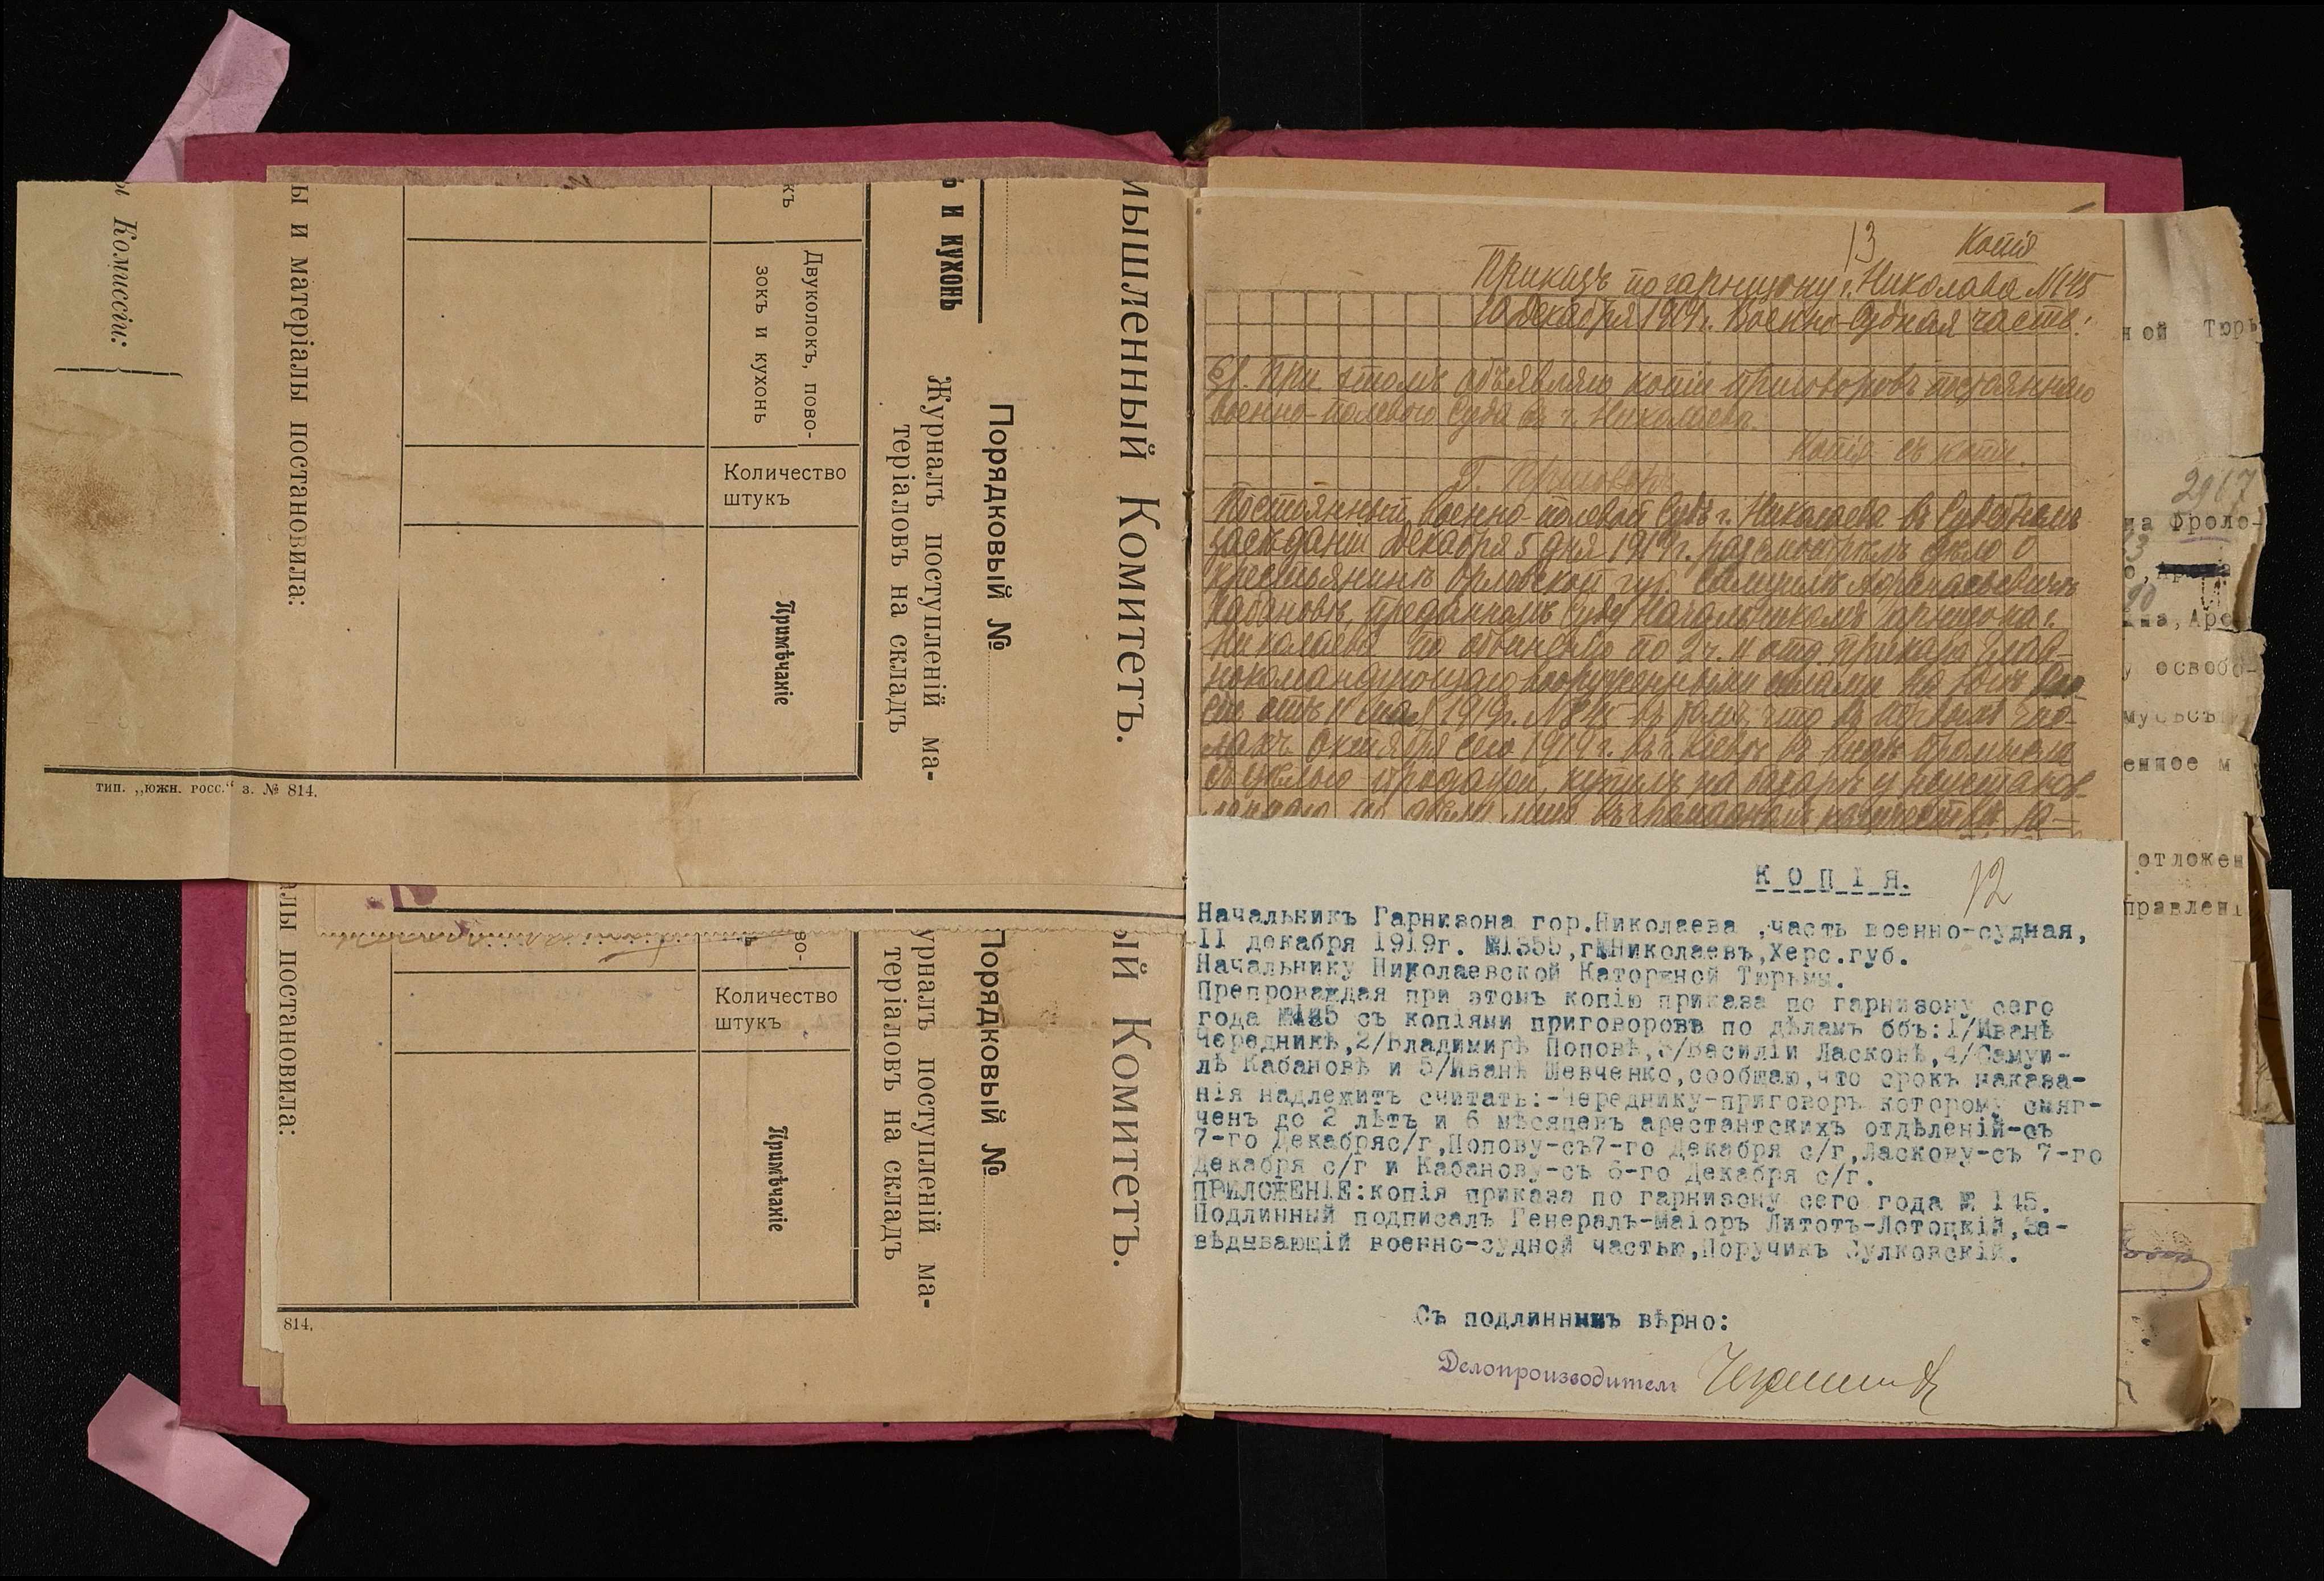 ы Комиссіи:
ы и матеріалы постановила:
къ
Двуколокъ, пово-
зокъ и кухонь
Количество
штукъ
Примѣчаніе
ъ и кухонь
Журналъ поступленій ма-
теріаловъ на складъ
Порядковый №
мышленный Комитетъ.
тип. „южн. росс.“ з. № 814.
алы постановила:
во-
Количество
штукъ
Примѣчаніе
урналъ поступленій ма-
теріаловъ на складъ
Порядковый №
ый Комитетъ.
814.
13 Копія
Приказъ по гарнизону г. Николаева №145
10 декабря 1919г. Военно-Судная часть.
При этомъ объявляю копіи приговоровъ постояннаго
военно-полевого суда въ г. Николаевѣ.
Копія съ копіи.
Приговоръ
Постоянный военно-полевой судъ г. Николаева въ судебномъ
засѣданіи декабря 5 дня 1919г. разсмотрѣлъ дѣло о
крестьянинѣ Орловской губ. Самуилѣ Афанасьевичѣ
Кабановѣ, преданномъ суду Начальникомъ гарнизона г.
Николаева по обвиненію по 2 ч. II отд. приказа Глав-
нокомандующаго вооруженными силами на Югѣ
1919г. въ томъ что въ первыхъ чис-
лахъ октября сего 1919г. въ г. Кіевѣ въ видѣ промысла
съ цѣлью продажи, купилъ на базарѣ у неустанов-
12
К О П І Я.
Начальникъ Гарнизона гор.Николаева ,часть военно-судная,
II декабря 1919г. №1355,г.Николаевъ,Херс.губ.
Начальнику Николаевской Каторжной Тюрьмы.
Препровождая при этомъ копію приказа по гарнизону сего
года №145 съ копіями приговоровъ по дѣламъ объ:1/Иванѣ
Чередникѣ,2/Владимирѣ Поповѣ,3/Василіи Ласковѣ,4/Самуи-
лѣ Кабановѣ и 5/Иванѣ Шевченко,сообщаю,что срокъ наказа-
нія надлежитъ считать:-Череднику-приговоръ которому смяг-
ченъ до 2 лѣтъ и 6 мѣсяцевъ арестантскихъ отдѣленій-съ
7-го Декабряс/г,Попову-съ7-го Декабря с/г,Ласкову-съ 7-го
Декабря с/г и Кабанову-съ 5-го Декабря с/г.
ПРИЛОЖЕНІЕ:копія приказа по гарнизону сего года № 145.
Подлинный подписалъ Генералъ-Маіоръ Литотъ-Лотоцкій,За-
вѣдывающій военно-судной частью,Поручикъ Сулковскій.
Съ подлиннымъ вѣрно:
Делопроизводитель
ной Тюрь
2917
на Фроло-
на,Аре
у освобо-
енное м
отложен
правлені